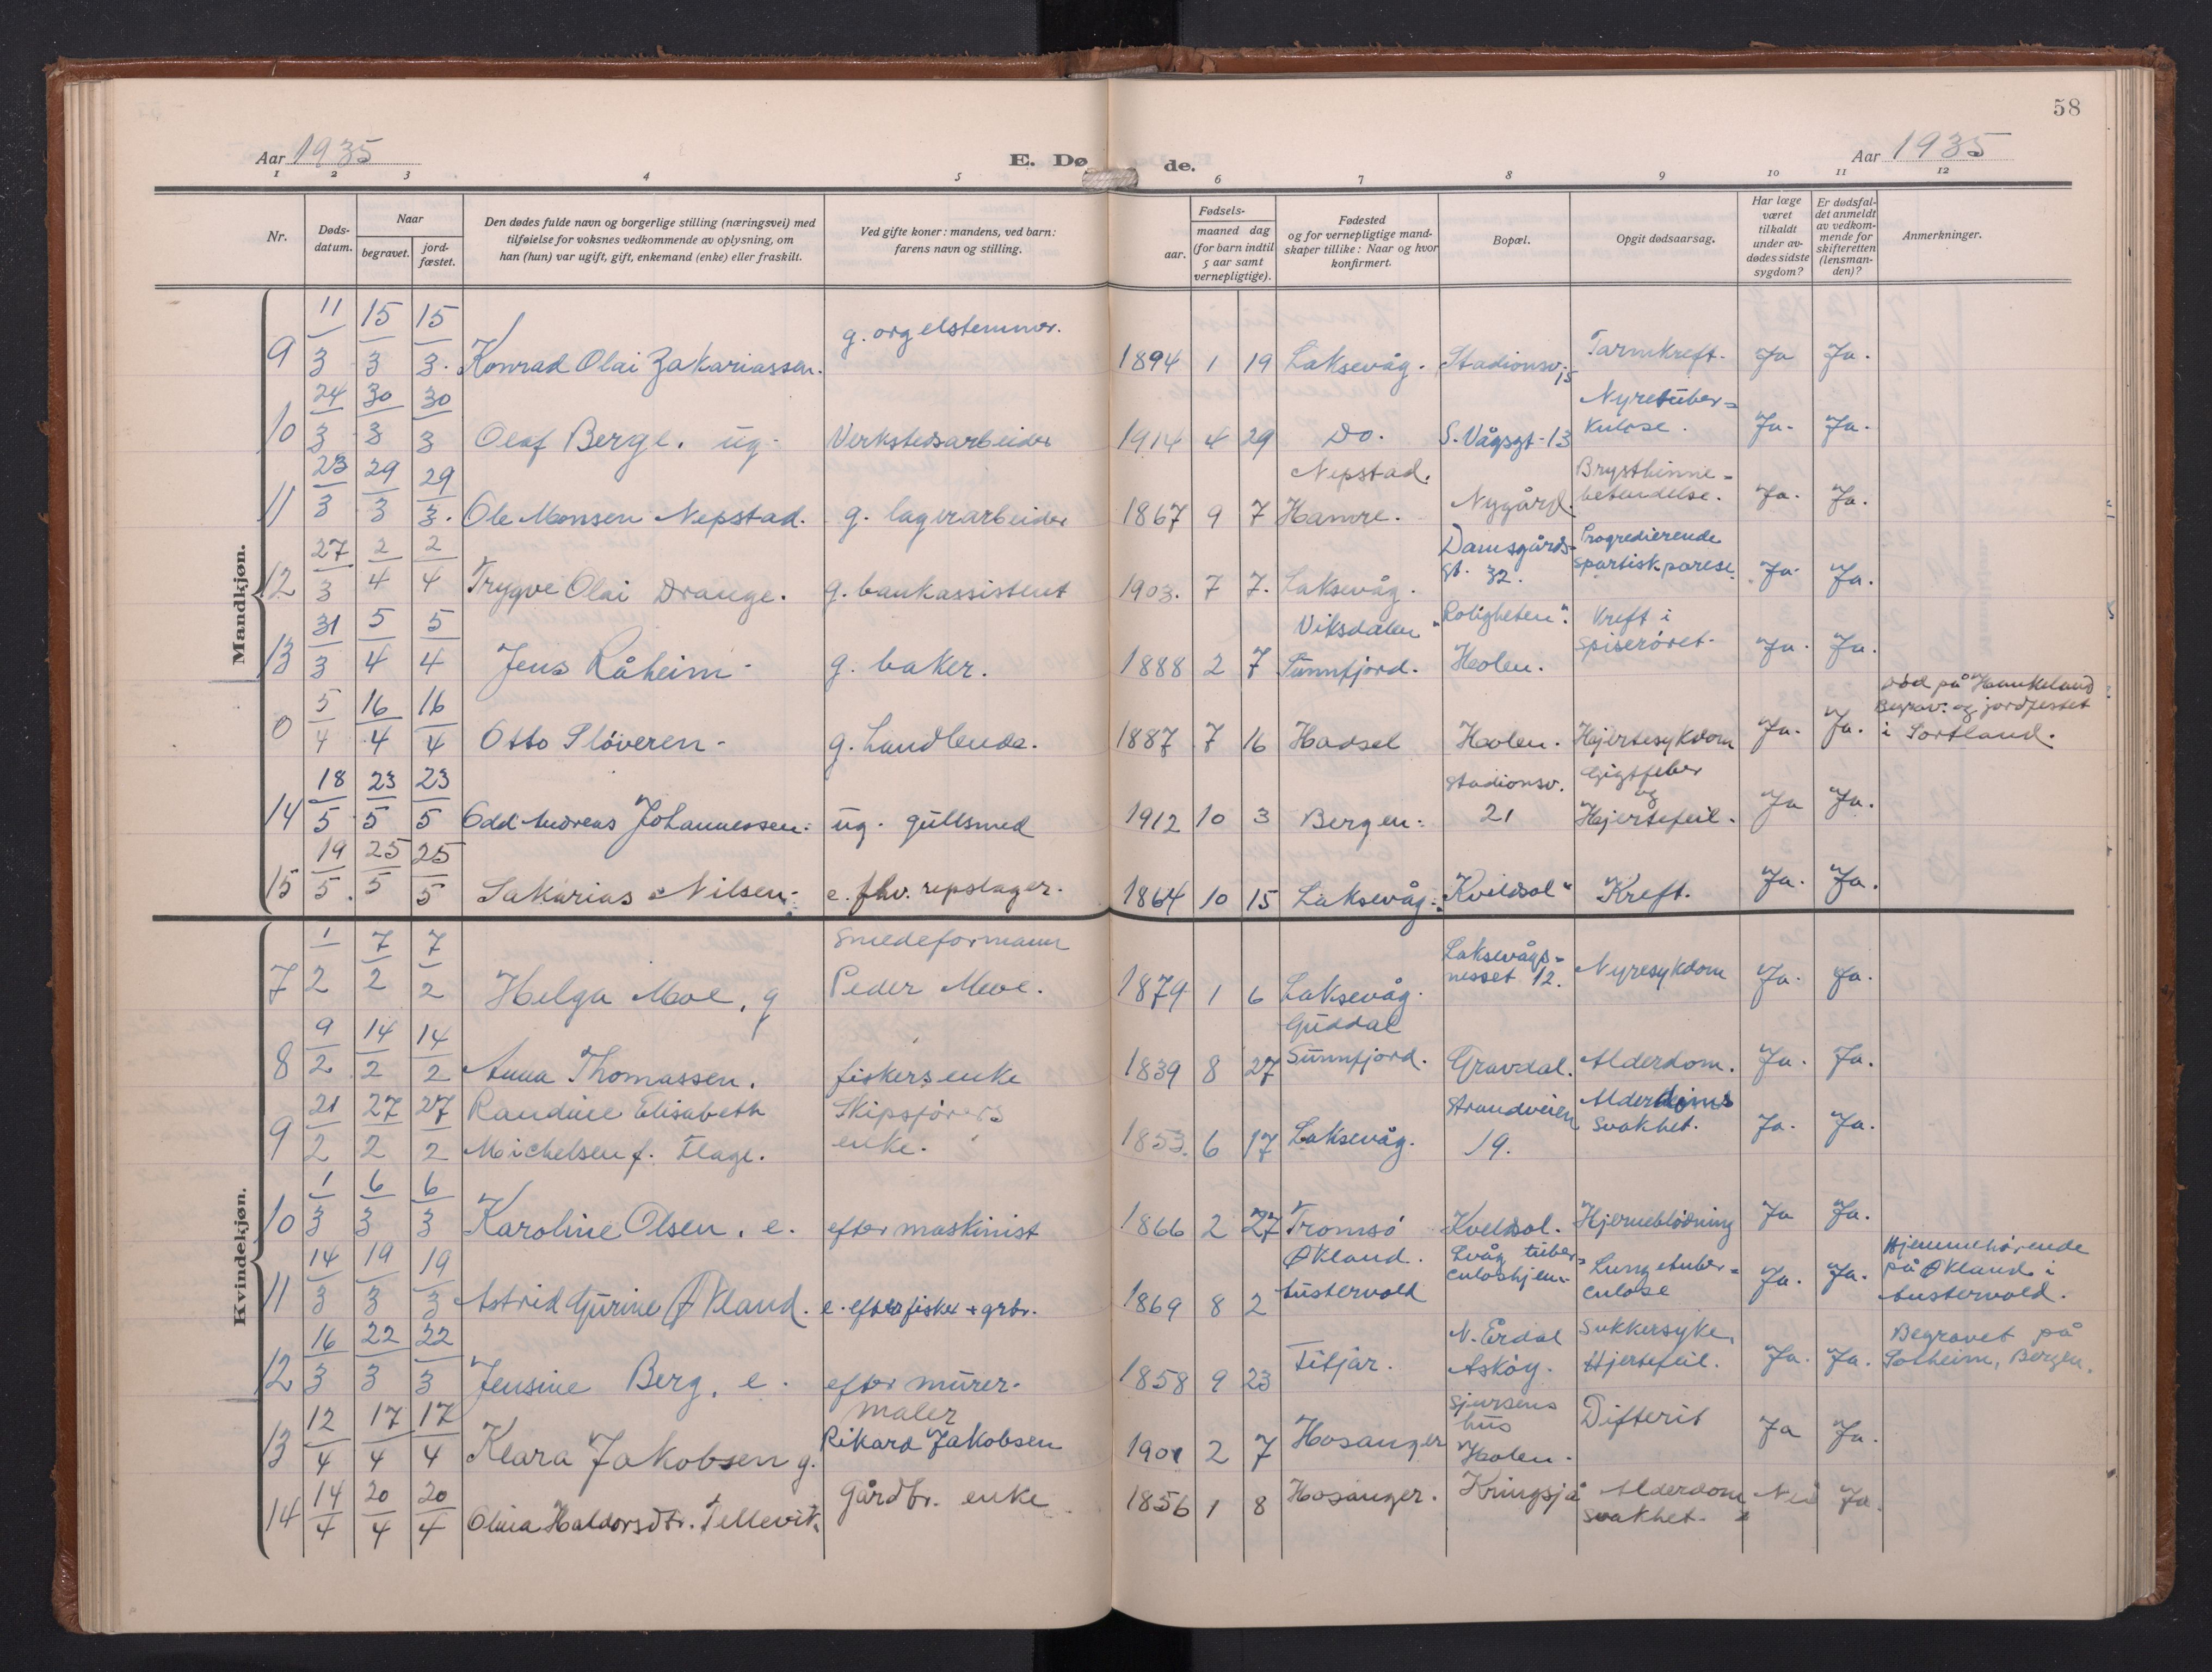 58
Aar 1935
E. Dø de.
Aar 1935
1 2 3 4 5 6 7 8 9 10 11 12
Nr.
Døds-
datum.
Naar
begravet.
jord-
fæstet.
Den dødes fulde navn og borgerlige stilling (næringsvei) med
tilføielse for voksnes vedkommende av oplysning, om
han (hun) var ugift, gift, enkemand (enke) eller fraskilt.
Ved gifte koner: mandens, ved barn:
farens navn og stilling.
Fødsels-
aar.
maaned dag
(for barn indtil
5 aar samt
vernepligtige).
Fødested
og for vernepligtige mand-
skaper tillike: Naar og hvor
konfirmert.
Bopæl.
Opgit dødsaarsag.
Har læge
været
tilkaldt
under av-
dødes sidste
sygdom?
Er dødsfal-
det anmeldt
av vedkom-
mende for
skifteretten
(lensman-
den)?
Anmerkninger.
Mandkjøn.
9 11/3 15/3 15/3. Konrad Olai Zakariassen. g. orgelstemmer. 1894 1 19 Laksevåg. Stadionsv. 15 Tarmkreft. Ja Ja.
10 24/3 30/3 30/3 Olaf Berge. ug. Verkstedsarbeider 1914 4 29 Do. S. Vågsgt. 13 Nyretuber=
kulose. Ja. Ja.
11 23/3 29/3 29/3. Ole Monsen Nepstad. g. lagerarbeider 1867 9 7 Nepstad.
Hamre. Nygård. Brysthinne=
betendelse. Ja. Ja.
12 27/3 2/4 2/4 Trygve Olai Drange. g. bankassistent 1903. 7 7. Laksevåg. Damsgårds-
gt. 32. Progredierende
spastisk parese. Ja. Ja.
13 31/3 5/4 5/4 Jens Råheim. g. baker. 1888 2 7 Viksdalen
Sunnfjord. "Roligheten".
Holen. Kreft i
spiserøret. Ja. Ja.
0 5/4 16/4 16/4 Otto Sløveren. g. Landhendl. 1887 7 16 Hadsel Holen. Hjertesykdom Ja. Ja. Død på Haukeland
Begrav. og jordfestet
i Sortland.
14 18/5 23/5 23/5 Odd Andreas Johannessen. ug. gullsmed 1912 10 3 Bergen. Stadionsv.
21 Gigtfeber
og
Hjertefeil. Ja Ja.
15 19/5. 25/5 25/5 Sakarias Nilsen. e. fhv. repslager. 1864 10 15 Laksevåg. "Kveldsol" Kreft. Ja. Ja.
Kvindekjøn.
7 1/2 7/2 7/2 Helga Moe, g Smedeformann
Peder Moe. 1879 1 6 Laksevåg. Laksevågs=
nesset 12. Nyresykdom Ja. Ja.
8 9/2 14/2 14/2 Anna Thomassen. fiskers enke 1839 8 27 Guddal
Sunnfjord. Gravdal. Alderdom. Ja. Ja.
9 21/2 27/2 27/2 Randine Elisabeth
Michelsen f. Flage. Skipsførers
enke. 1853. 6 17 Laksevåg. Strandveien
19. Alderdoms
svakhet. Ja. Ja.
10 1/3 6/3 6/3 Karoline Olsen. e. efter maskinist 1866 2 27 Tromsø Kveldsol. Hjerneblødning Ja Ja.
11 14/3 19/3 19/3 Astrid Gurine Økland. e. efter fisker + grbr. 1869 8 2 Økland.
Austervold Lvåg tuber=
culoshjem. Lungetuber=
culose Ja. Ja. Hjemmehørende
på Økland i
Austervold.
12 16/3 22/3 22/3 Jensine Berg, e. efter murer. 1858 9 23 Fitjar. N. Erdal
Askøy. Sukkersyke,
Hjertefeil. Ja. Ja. Begravet på
Solheim, Bergen.
13 12/4 17/4 17/4 Klara Jakobsen g. maler
Rikard Jakobsen 1901 2 7 Hosanger Sjursens
hus
Holen. Difterit Ja Ja.
14 14/4 20/4 20/4 Olina Haldorsdtr. Tellevik. Gårdbr. enke 1856 1 8 Hosanger. Kringsjå Alderdom
svakhet. Nei Ja.